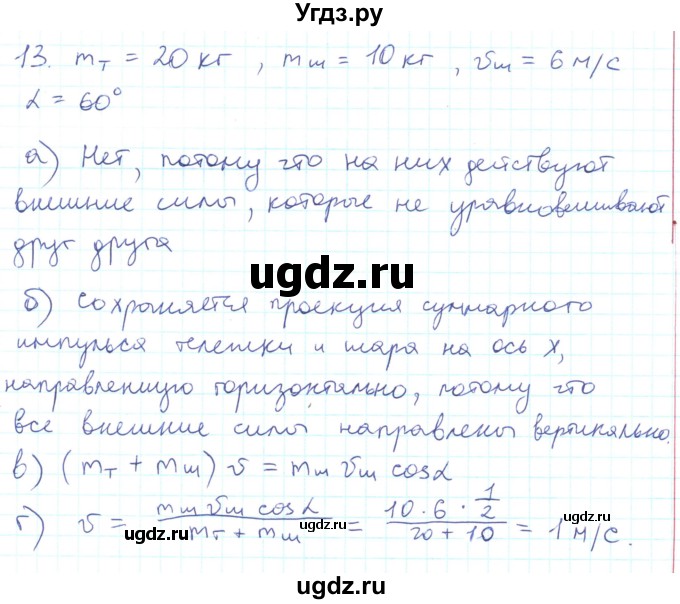 Угдз.ру
13. mт = 20 кг , mш = 10 кг , vш = 6 м/с
α = 60°
а) Нет, потому что на них действуют
внешние силы, которые не уравновешивают
друг друга
ugdz.ru
б) сохраняется проекция суммарного
импульса тележки и шара на ось X,
направленную горизонтально, потому что
все внешние силы направлены вертикально.
в) (mт + mш) v = mш vш cosα
г) v = mш vш cosα / mт + mш = 10 · 6 · 1/2 / 20 + 10 = 1 м/с.
ugdz.ru ugdz.ru ugdz.ru ugdz.ru
ugdz.ru